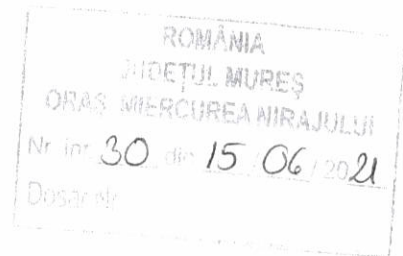 ROMÂNIA
JUDEȚUL MUREȘ
ORAȘ MIERCUREA NIRAJULUI
Nr. înr. 30 din 15 / 06 / 2021
Dosar Nr.